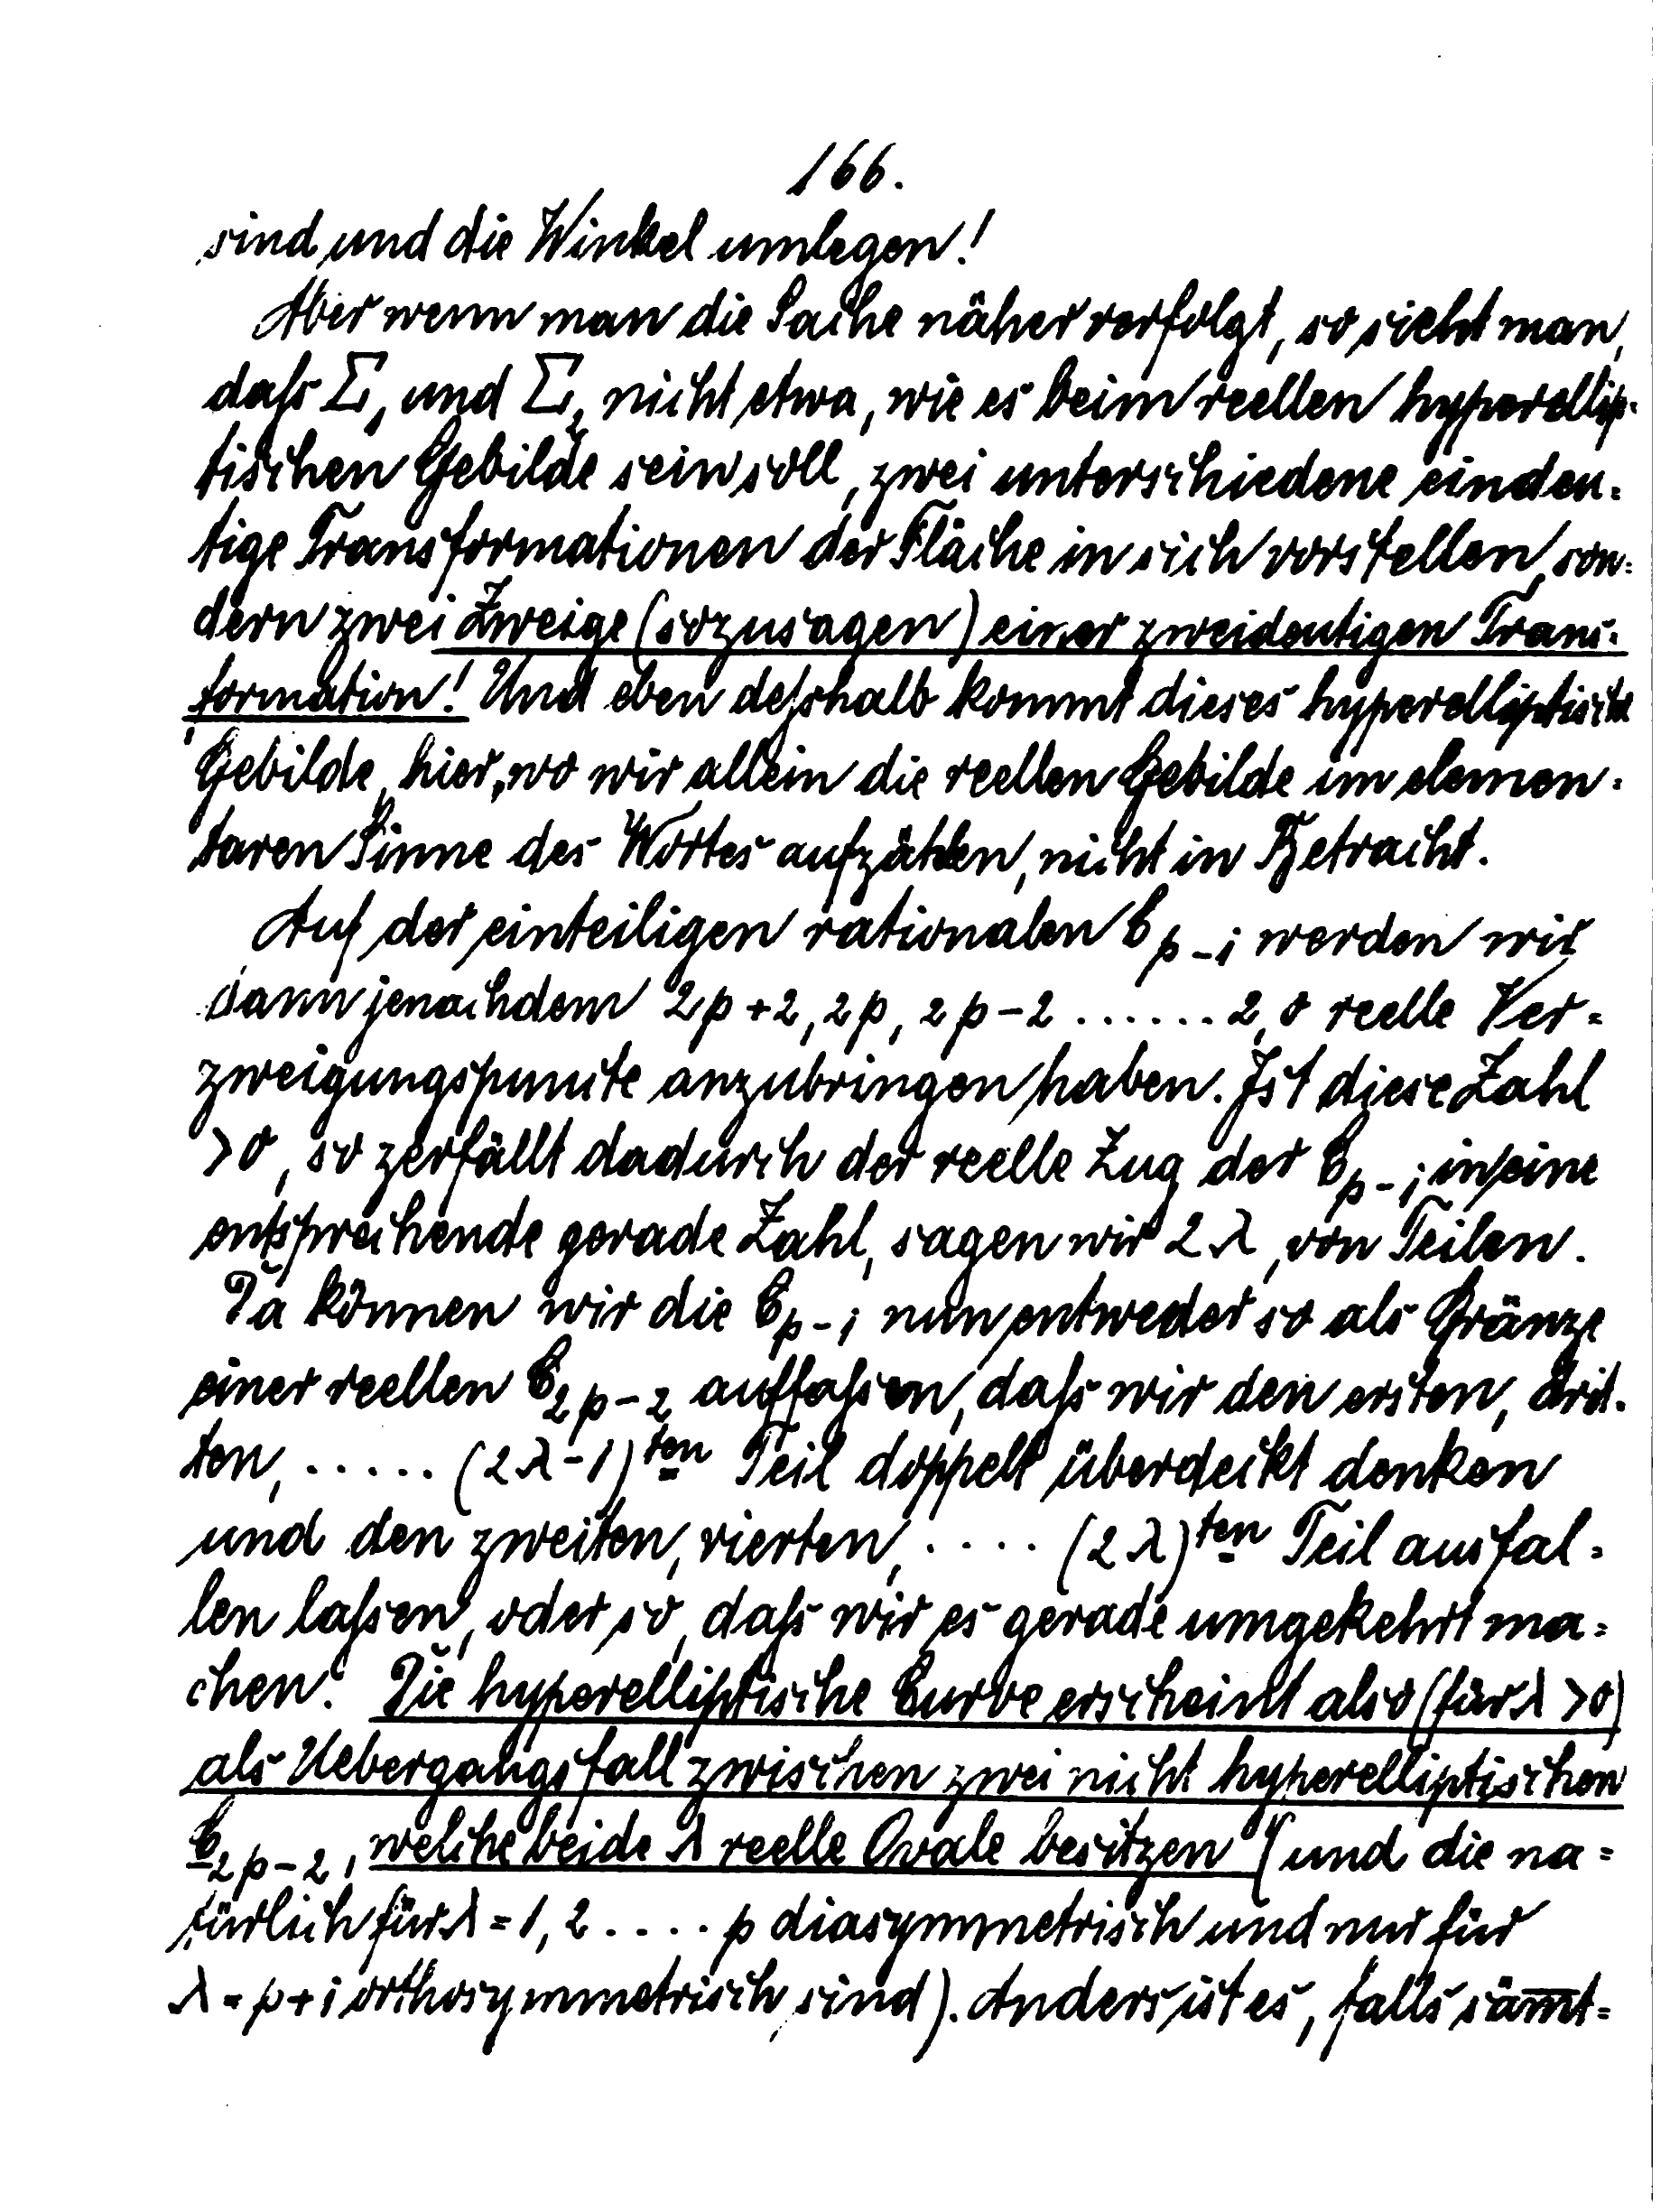 166.
sind und die Winkel umlegen!
Aber wenn man die Sache näher verfolgt, so sieht man,
daß Σ₁ und Σ₂ nicht etwa, wie es beim reellen hyperellip-
tischen Gebilde sein soll, zwei unterschiedene eindeu-
tige Transformationen der Fläche in sich vorstellen, son-
dern zwei Zweige (sozusagen) einer zweideutigen Trans-
formation! Und eben deßhalb kommt dieses hyperelliptische
Gebilde hier, wo wir allein die reellen Gebilde im elemen-
taren Sinne des Wortes aufzählen, nicht in Betracht.
Auf der einteiligen rationalen C_{p-1} werden wir
dann jenachdem 2p+2, 2p, 2p-2 ...... 2, 0 reelle Ver-
zweigungspuncte anzubringen haben. Ist diese Zahl
>0, so zerfällt dadurch der reelle Zug der C_{p-1} in eine
entsprechende gerade Zahl, sagen wir 2λ, von Teilen.
Da können wir die C_{p-1} nun entweder so als Gränze
einer reellen C_{2p-2} auffaßen, daß wir den ersten, drit-
ten, ..... (2λ-1)ten Teil doppelt überdeckt denken
und den zweiten, vierten, .... (2λ)ten Teil ausfal-
len laßen, oder so, daß wir es gerade umgekehrt ma-
chen. Die hyperelliptische Curve erscheint also (für λ>0)
als Uebergangsfall zwischen zwei nicht hyperelliptischen
C_{2p-2}, welche beide λ reelle Ovale besitzen (und die na-
türlich für λ=1, 2 .... p diasymmetrisch und nur für
λ=p+1 orthosymmetrisch sind). Anders ist es, falls sämt-